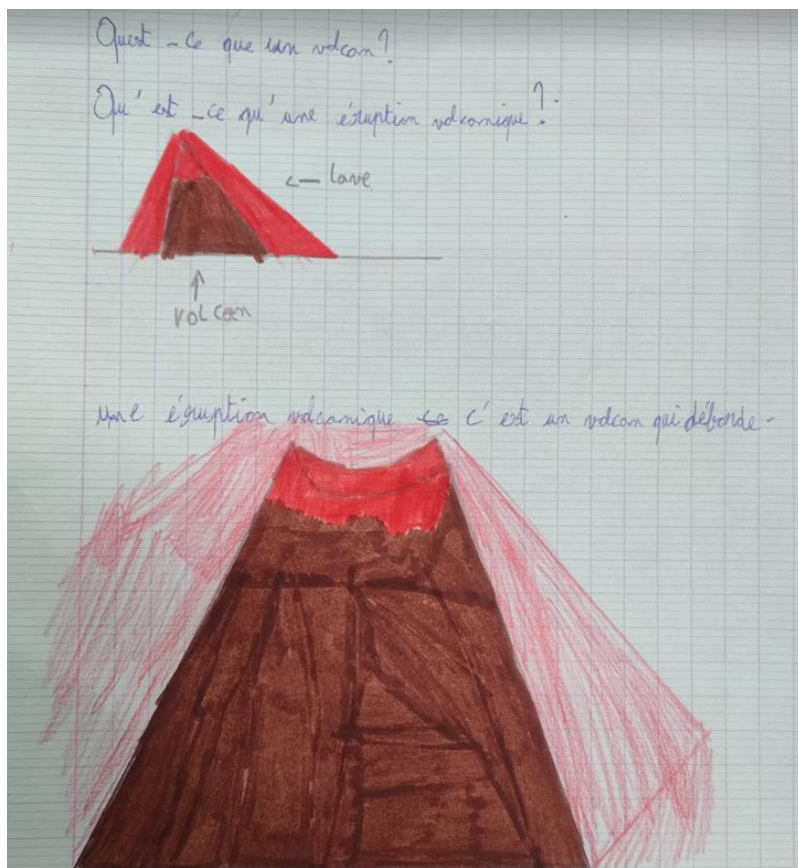 Quest-ce que un volcan?
Qu'est-ce qu'une éruption volcanique?
← lave
↑
volcan
une éruption volcanique ce c'est un volcan qui déborde.